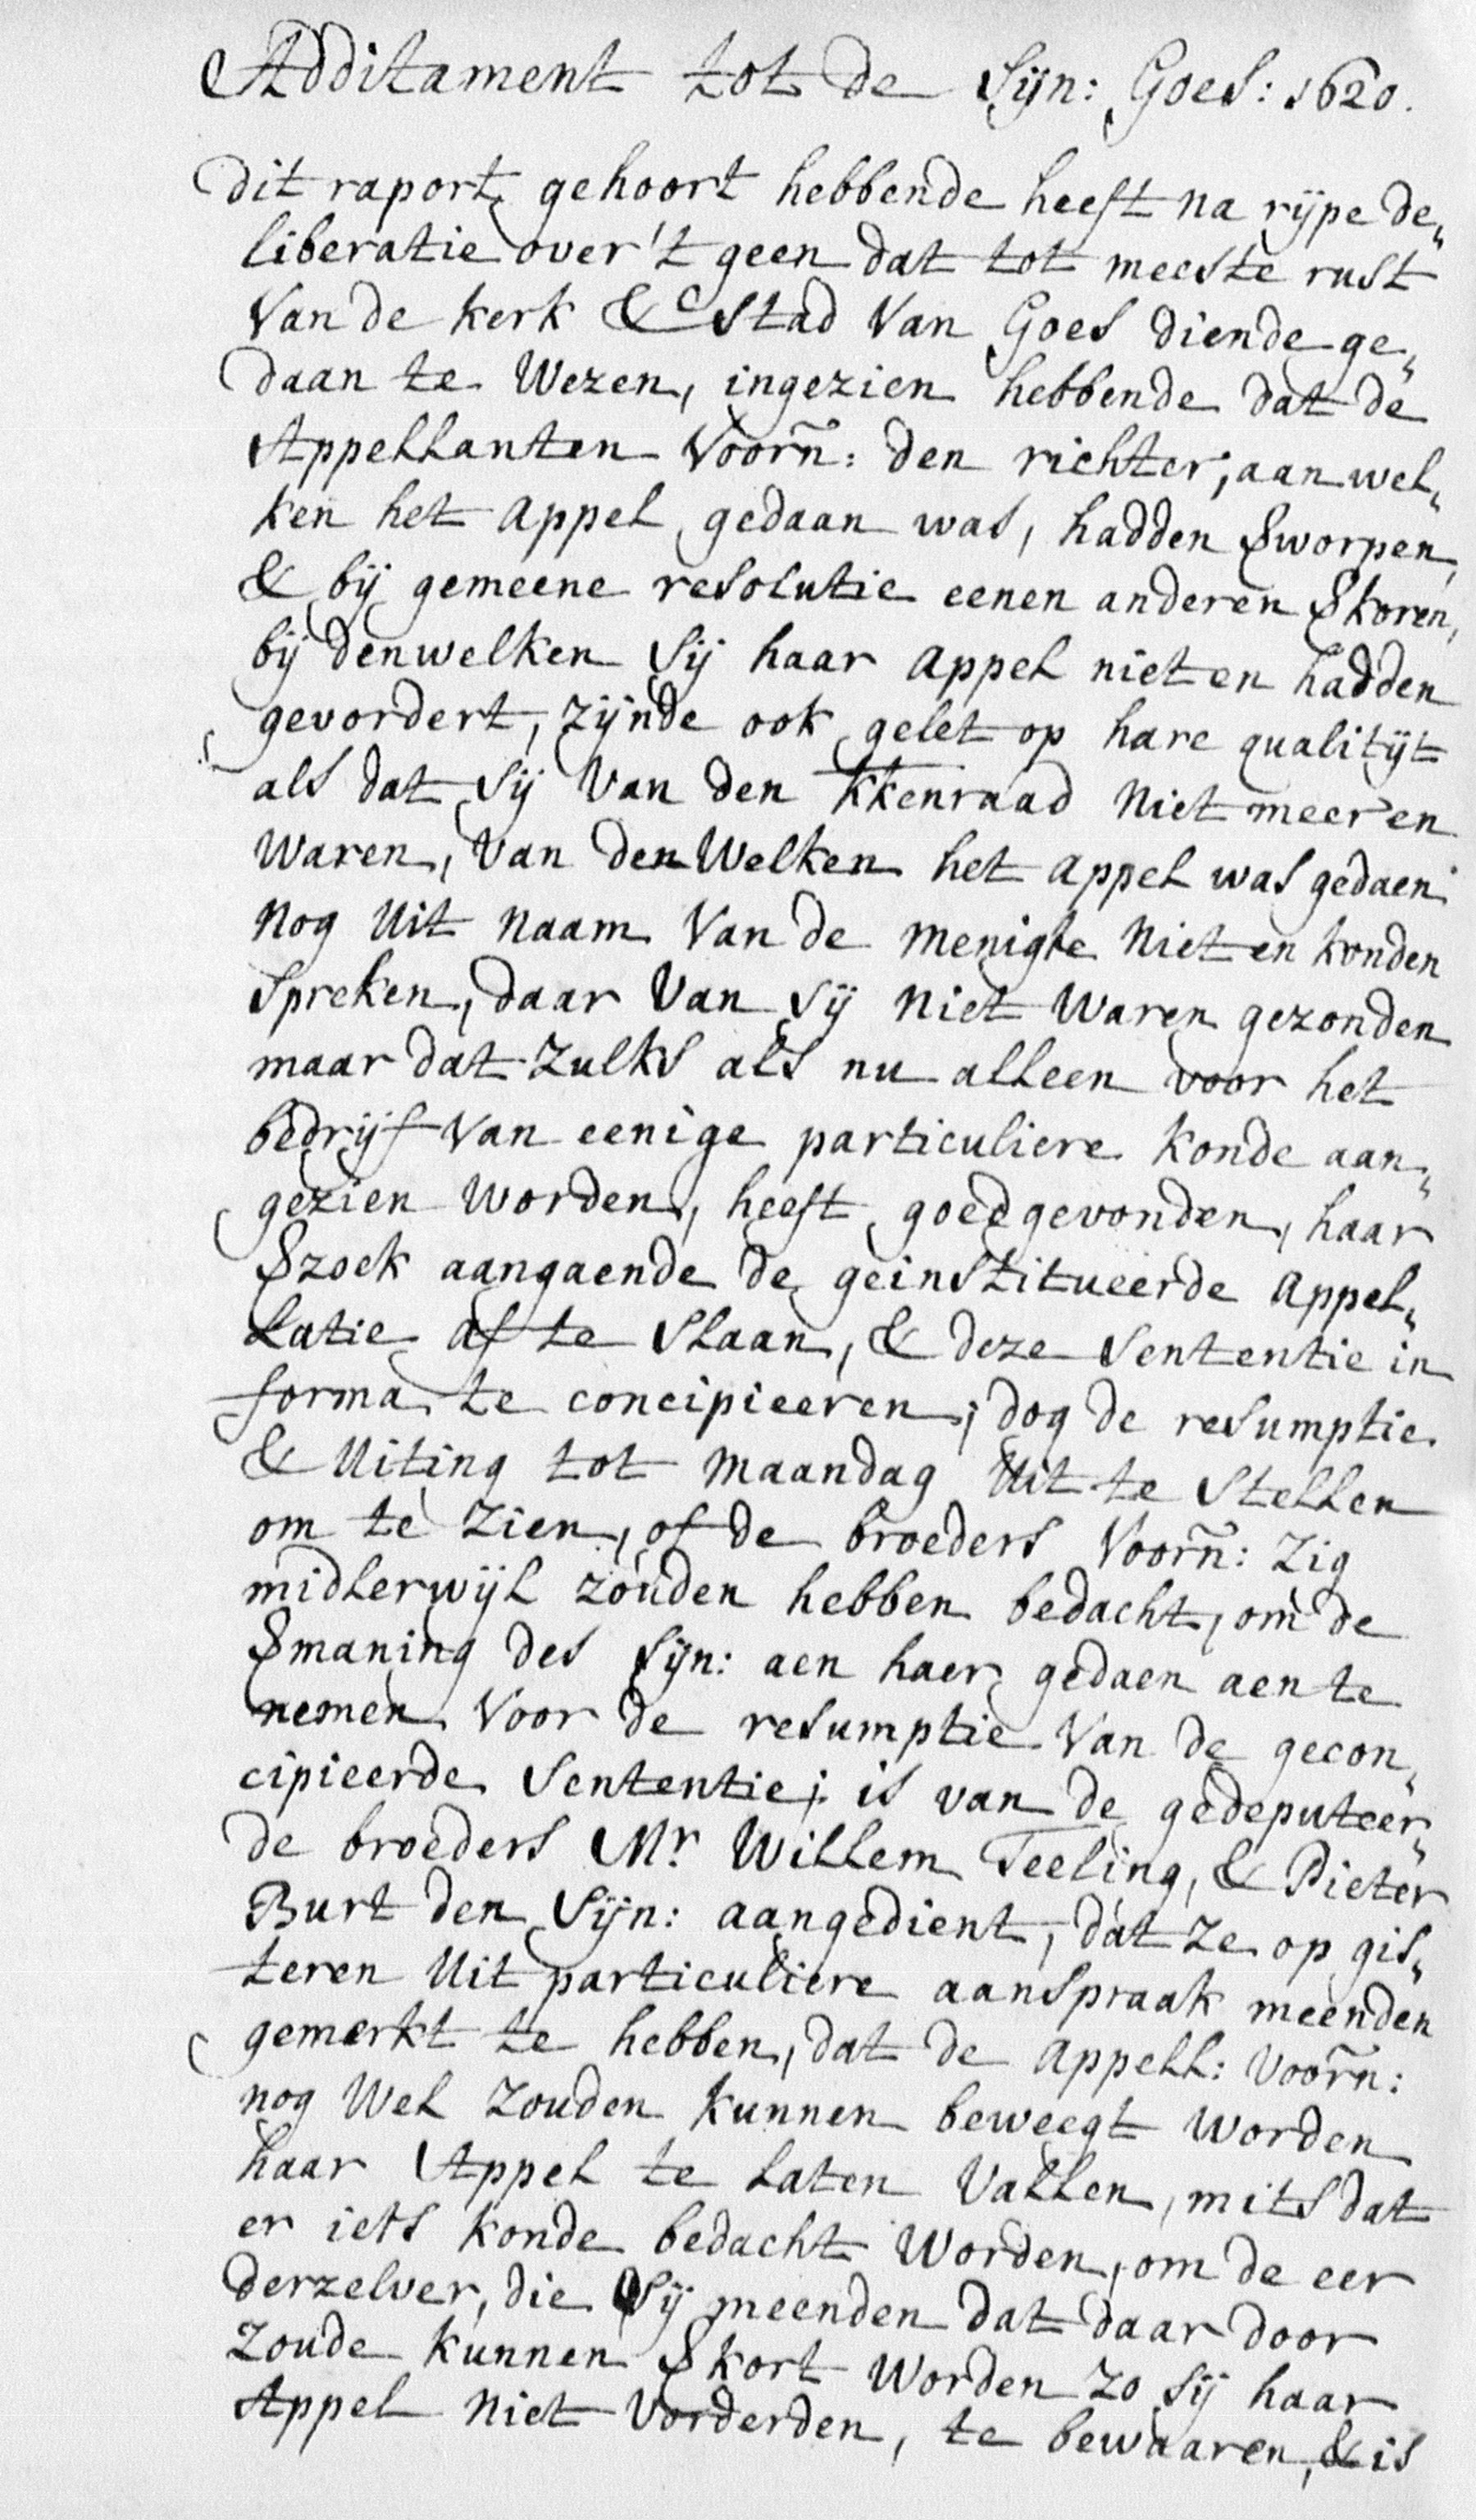 Additament tot de Sijn: Goes: 1620.
dit raport gehoort hebbende heeft na rijpe de„
liberatie over 't geen dat tot meeste rust
Van de Kerk & Stad Van Goes diende ge„
daan te Wezen, ingezien hebbende dat de
Appellanten Voorñ: den richter, aan wel„
ken het appel gedaan was, hadden ẞworpen,
& bij gemeene resolutie eenen anderen ẞkoren,
bij denwelken sij haar appel niet en hadden
gevordert, zijnde ook gelet op hare qualitijt
als dat sij Van den Kkenraad niet meer en
Waren, Van den Welken het appel was gedaen
nog Uit naam Van de menigte niet en konden
spreken, daar Van sij niet Waren gezonden
maar dat zulks als nu alleen voor het
bedrijf Van eenige particuliere Konde aan„
gezien Worden, heeft goedgevonden, haar
ẞzoek aangaende de geinstitueerde appel„
latie af te slaan, & deze sententie in
forma te concipieeren; dog de resumptie
& Uiting tot maandag Uit te stellen
om te zien, of de broeders Voorñ: zig
midlerwijl zouden hebben bedacht, om de
ẞmaning des Sijn: aen haer gedaen aen te
nemen Voor de resumptie Van de gecon„
cipieerde sententie; is van de gedeputeer„
de broeders Mr Willem Teeling, & Pieter
Burt den Sijn: aangedient, dat ze op gis„
teren Uit particuliere aanspraak meenden
gemerkt te hebben, dat de appell: Voorñ:
nog Wel zouden kunnen beweegt Worden
haar Appel te laten Vallen, mits dat
er iets konde bedacht Worden, om de eer
derzelver, die sij meenden dat daar door
zoude kunnen ẞkort Worden zo sij haar
Appel niet Vorderden, te bewaaren, & is